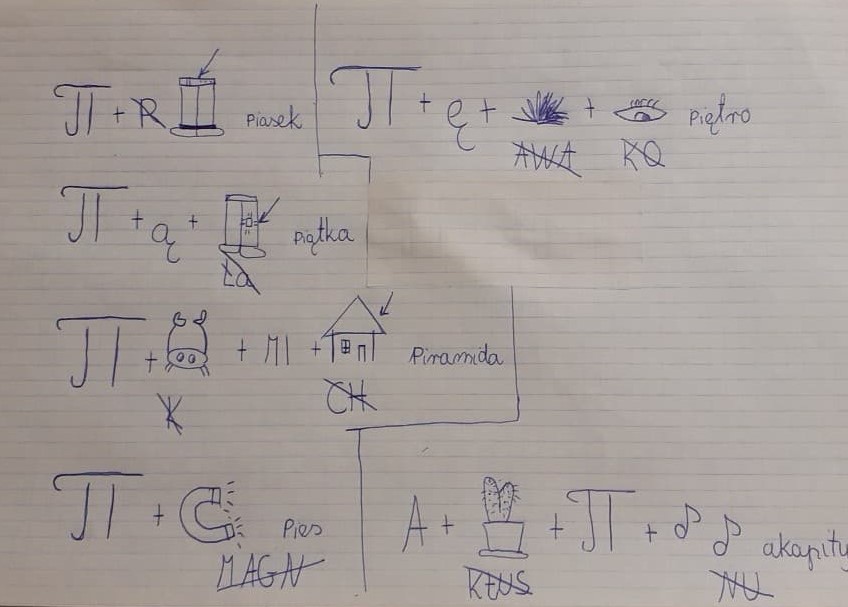 π + R piasek
π + ę + + piętro
AWA KO
π + ą + piątka
ŁA
π + + MI + piramida
K CH
π + pies
MAGN
A + + π + akapity
KTUS NU